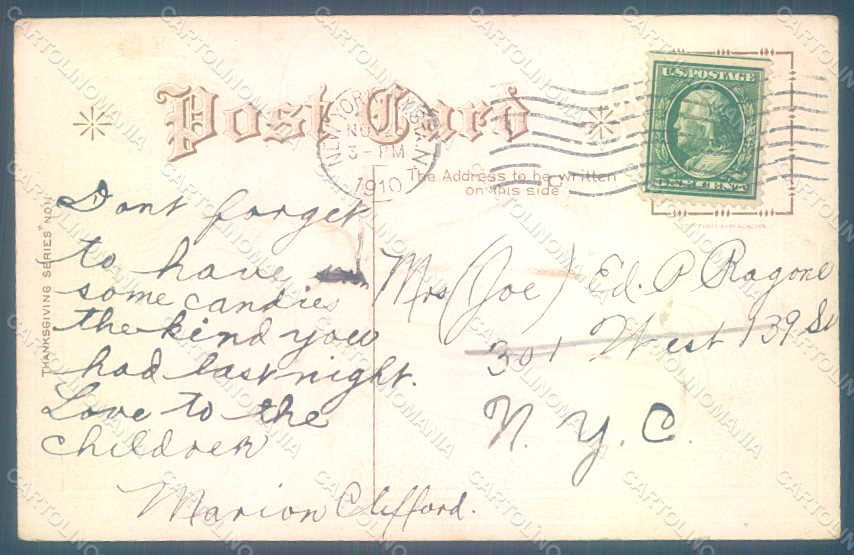 Post Card
NEW YORK, N.Y. STA. N
NOV
3 - PM
1910
U.S. POSTAGE
ONE CENT
The Address to be written
on this side
THANKSGIVING SERIES No
Dont forget
to have
some candies
the kind you
had last night.
Love to the
children
Marion Clifford.
Mrs (Joe) Ed. P Ragone
301 West 139 St
N. Y. C.
CARTOLINOMANIA